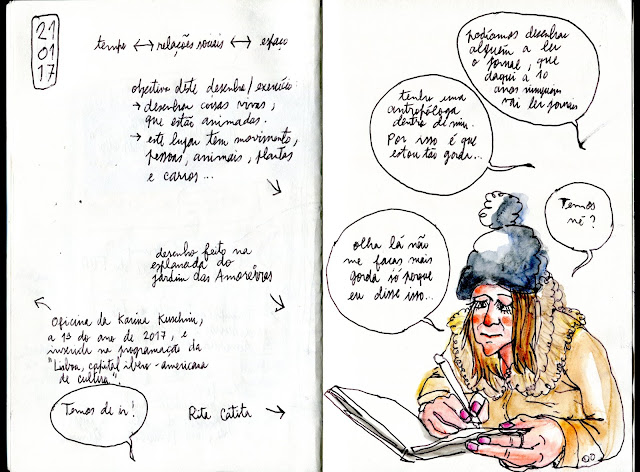 21
01
17
tempo ↔ relações sociais ↔ espaço
objectivo deste desenho/exercício:
→ desenhar coisas vivas,
que estão animadas.
→ este lugar tem movimento,
pessoas, animais, plantas
e carros...
desenho feito na
esplanada do
jardim das Amoreiras
Oficina da Karina Kuschnir,
a 1ª do ano de 2017, e
inserida na programação da
"Lisboa, capital ibero-americana
de cultura".
Temos de ir!
Rita Catita →
podíamos desenhar
alguém a ler
o jornal, que
daqui a 10
anos ninguém
vai ler jornais
tenho uma
antropóloga
dentro de mim.
Por isso é que
estou tão gorda...
Temos
né?
olha lá não
me faças mais
gorda só porque
eu disse isso...